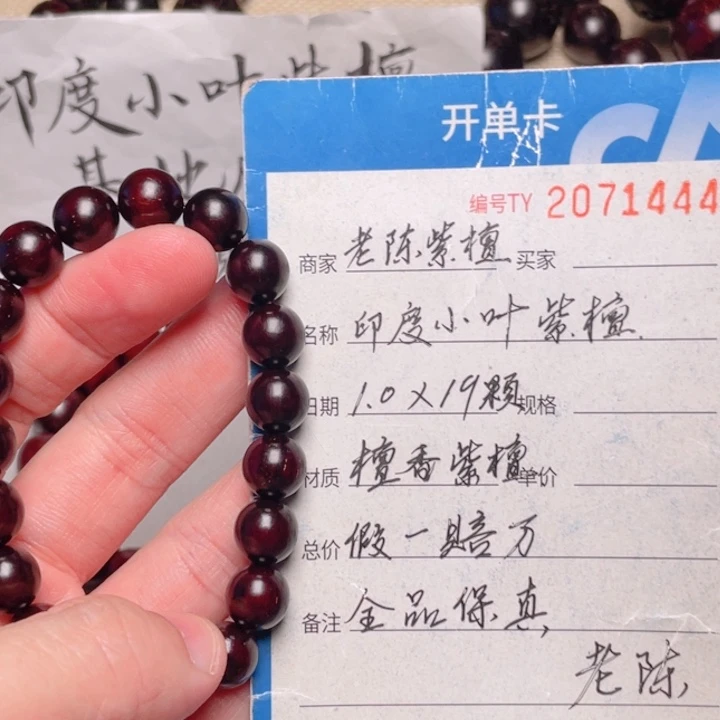 印度小叶紫檀
其他
开单卡
编号TY 2071444
商家 老陈紫檀 买家
名称 印度小叶紫檀
日期 1.0×19颗 规格
材质 檀香紫檀 单价
总价 假一赔万
备注 全品保真
老陈